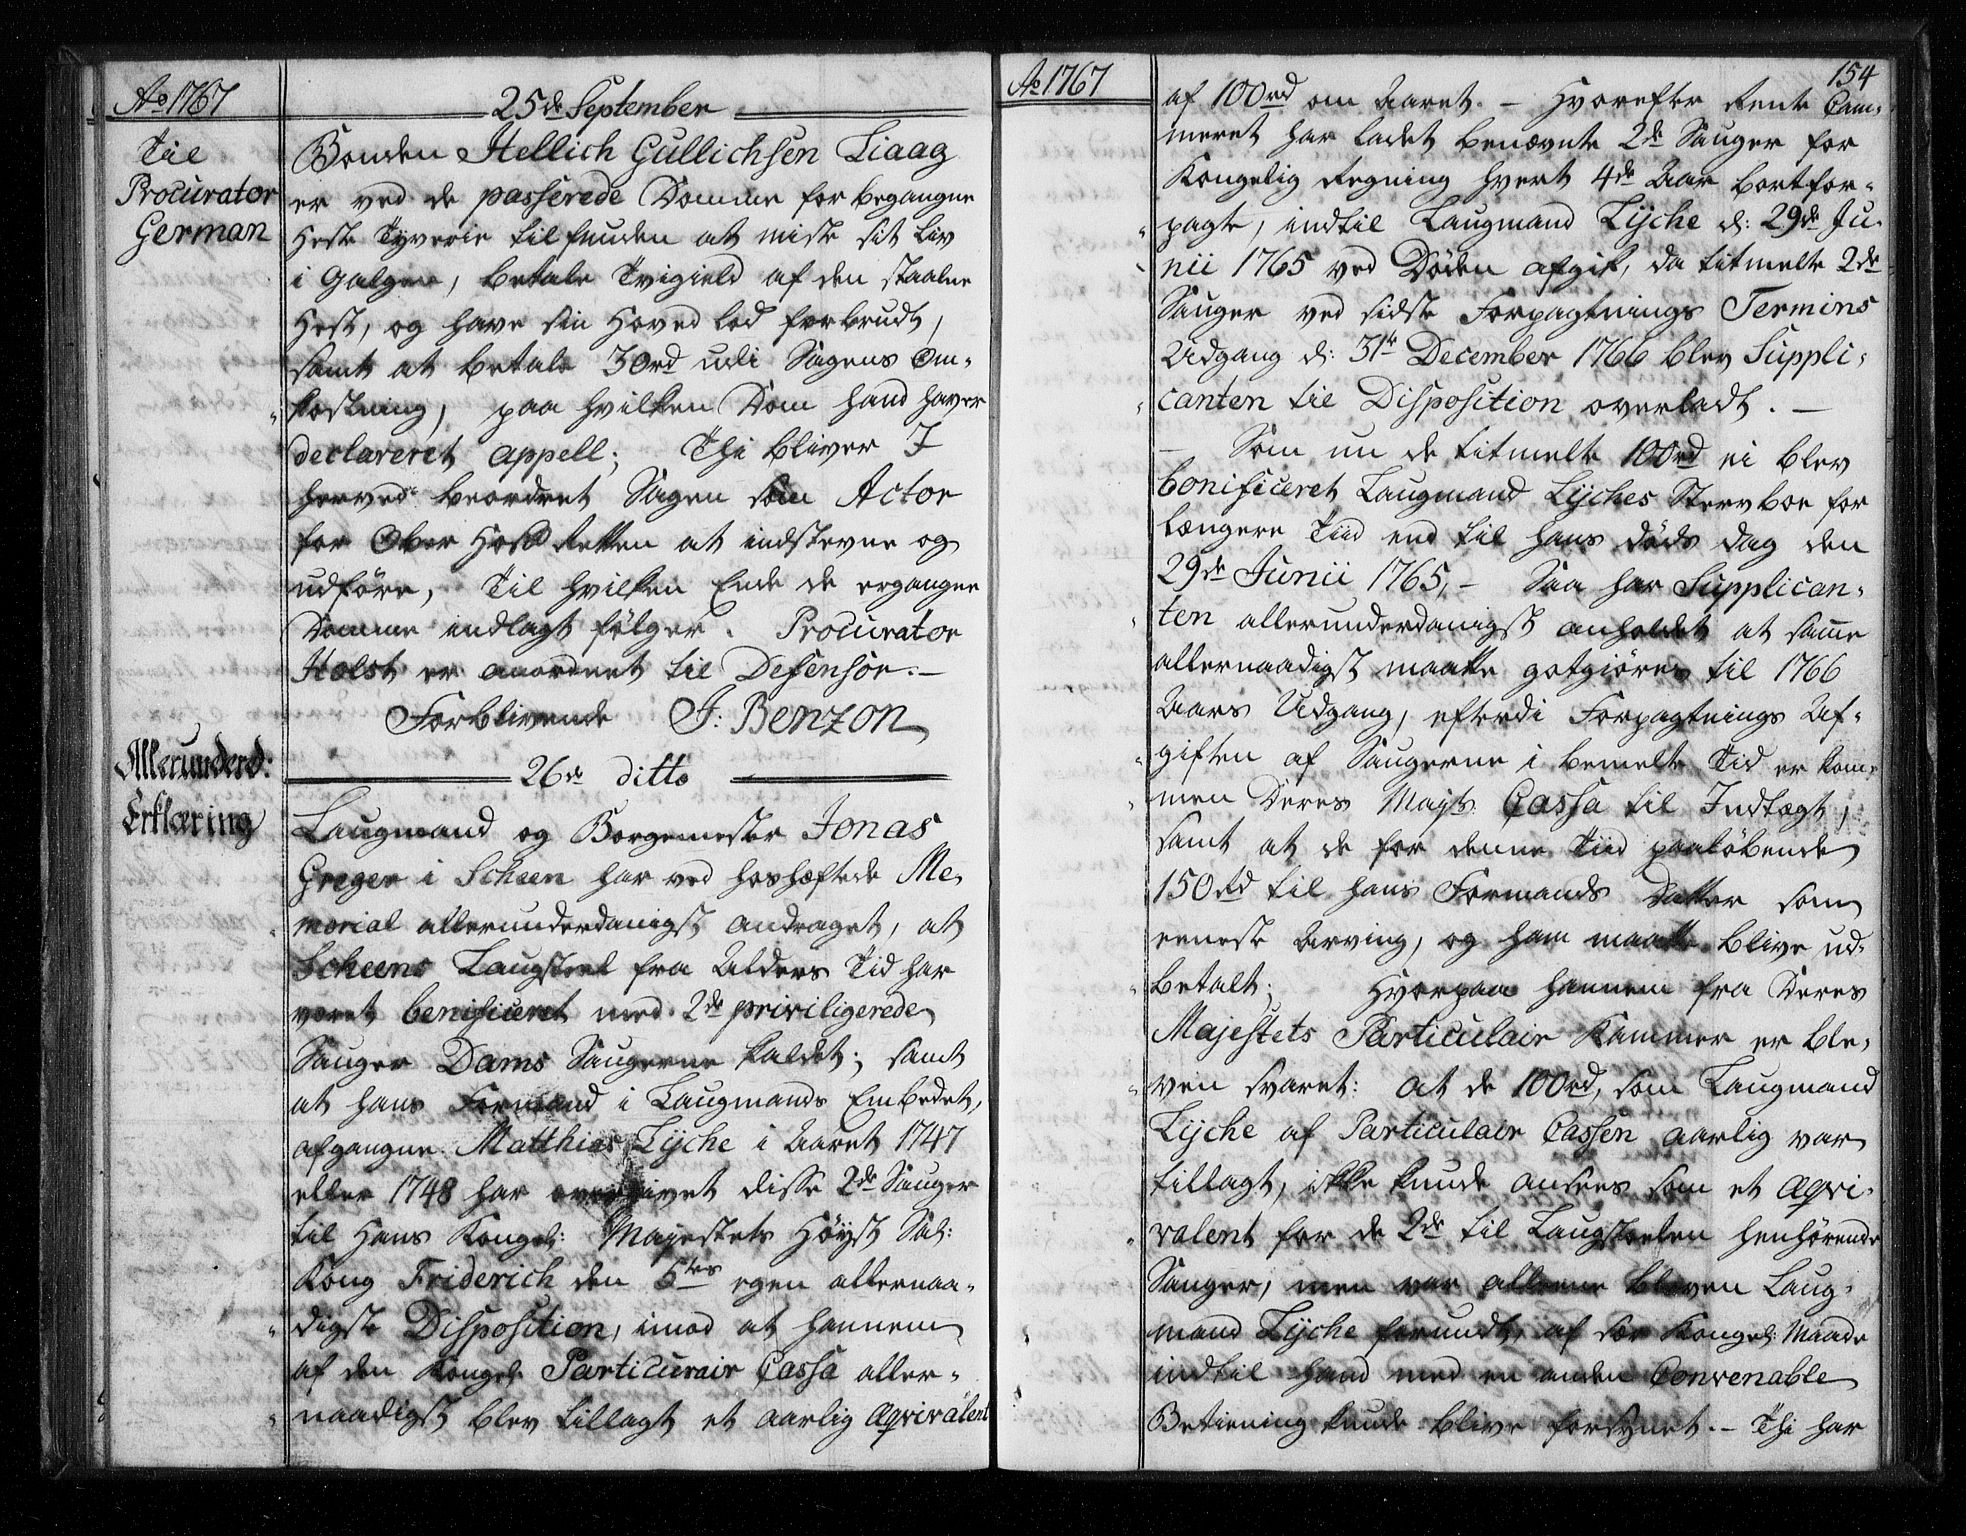 Ao 1767
25de September
Til
Procurator
German
Bonden Hellich Gullichsen Liaag
er ved de passerede Domme for begangne
Heste Tyverie tilfunden at miste sit Liv
i Galgen, betale Tvigield af den staalne
Hest, og have sin Hoved Lod forbrudt,
samt at betale 30rd udi Sagens Om-
kostning, paa hvilken Dom hand haver
declareret appell; Thi bliver I
herved beordret Sagen som Actor
for Ober Hof Retten at indstevne og
udføre, Til hvilken Ende de ergangne
Domme indlagt følger. Procurator
Holst er anordnet til Defensor.-
Forblivende J: Benzon
26de ditto
Allerunderd:
Erklæring
Laugmand og Borgemester Jonas
Greger i Scheen har ved hoshæftede Me-
morial allerunderdanigst andraget, at
Scheens Laugstoel fra Alders Tid har
været benificeret med 2de priviligerede
Sauger Dams Saugerne kaldet; samt
at hans Formand i Laugmands Embedet,
afgangne Matthias Lÿche i Aaret 1747
eller 1748 har overgivet disse 2de Sauger
til Hans Kongel: Majestets Høyst Sal:
Kong Friderich den 5tes egen allernaa-
digste Disposition, imod at hannem
af den Kongel: Particurair Cassa aller-
naadigst blev tillagt et aarlig Æqvivalent
Ao 1767
154
af 100rd om Aaret. - Hvorefter Rente Cam-
meret har ladet benævnte 2de Sauger for
Kongelig Regning hvert 4de Aar bortfor-
pagte, indtil Laugmand Lÿche d: 29de Ju-
nii 1765 ved Døden afgik, da titmelte 2de
Sauger ved sidste Forpagtnings Termins
Udgang d: 31te December 1766 blev Suppli-
canten til Disposition overladt. -
- Som nu de titmelte 100rd ei blev
bonificeret Laugmand Lÿches Stervboe for
længere Tiid end til hans døds dag den
29de Junii 1765, - Saa har Supplican-
ten allerunderdanigst anholdet at samme
allernaadigst maatte gotgiøres til 1766
Aars Udgang, efterdi Forpagtnings Af-
giften af Saugerne i bemelte Tid er kom-
men Deres Mayts Cassa til Indtægt,
samt at de for denne Tiid paaløbende
150Rd til hans Formands Datter som
eeneste Arving, og ham maatte blive ud-
betalt; Hvorpaa hannem fra Deres
Majestets Particulair Kammer er ble-
ven svaret: at de 100rd, som Laugmand
Lÿche af Particulair Cassen aarlig var
tillagt, ikke kunde ansees som et Æqvi-
valent for de 2de til Laugstoelen henhørende
Sauger, men var alleene bleven Laug-
mand Lÿche forundt, af sær Kongel: Naade
indtil hand med en anden Convenable
Betiening kunde blive forsynet. - Thi har